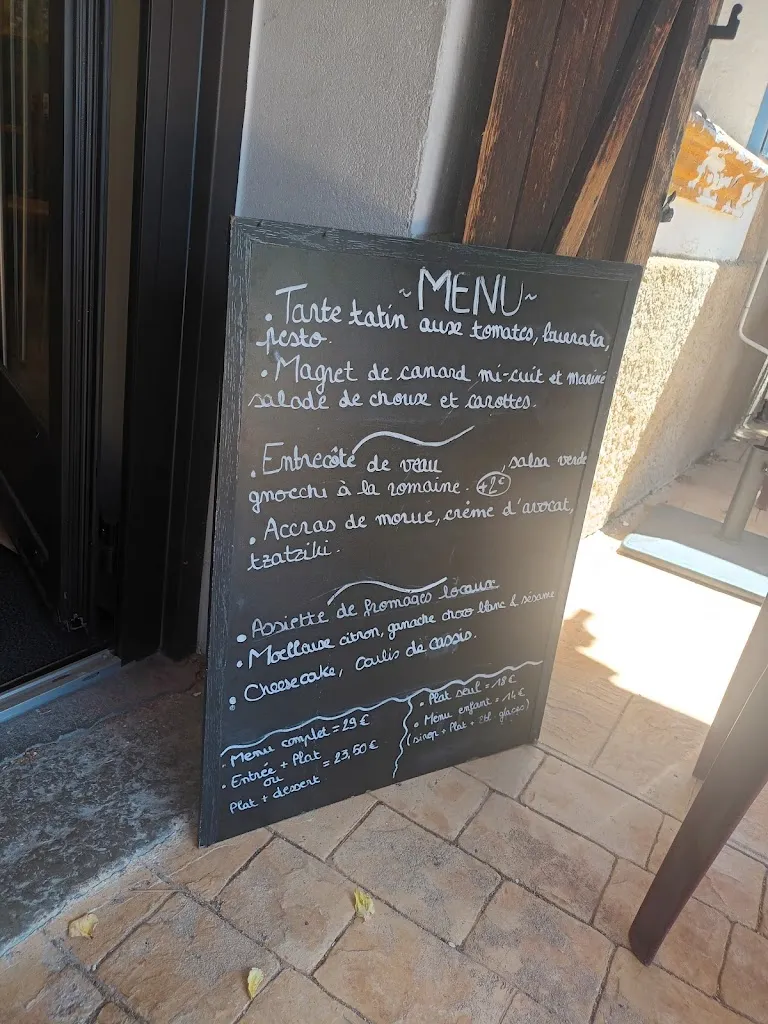 ~ MENU ~
• Tarte tatin aux tomates, burrata,
pesto.
• Magret de canard mi-cuit et mariné
salade de choux et carottes.
• Entrecôte de veau , salsa verde
gnocchi à la romaine. +2€
• Accras de morue, crème d'avocat,
tzatziki.
• Assiette de fromages locaux
• Moelleux citron, ganache choco blanc & sésame
• Cheesecake, coulis de cassis.
• Menu complet = 29 €
• Entrée + Plat
ou = 23,50 €
Plat + dessert
• Plat seul = 18 €
• Menu enfant = 14 €
(sirop + Plat + glaces)